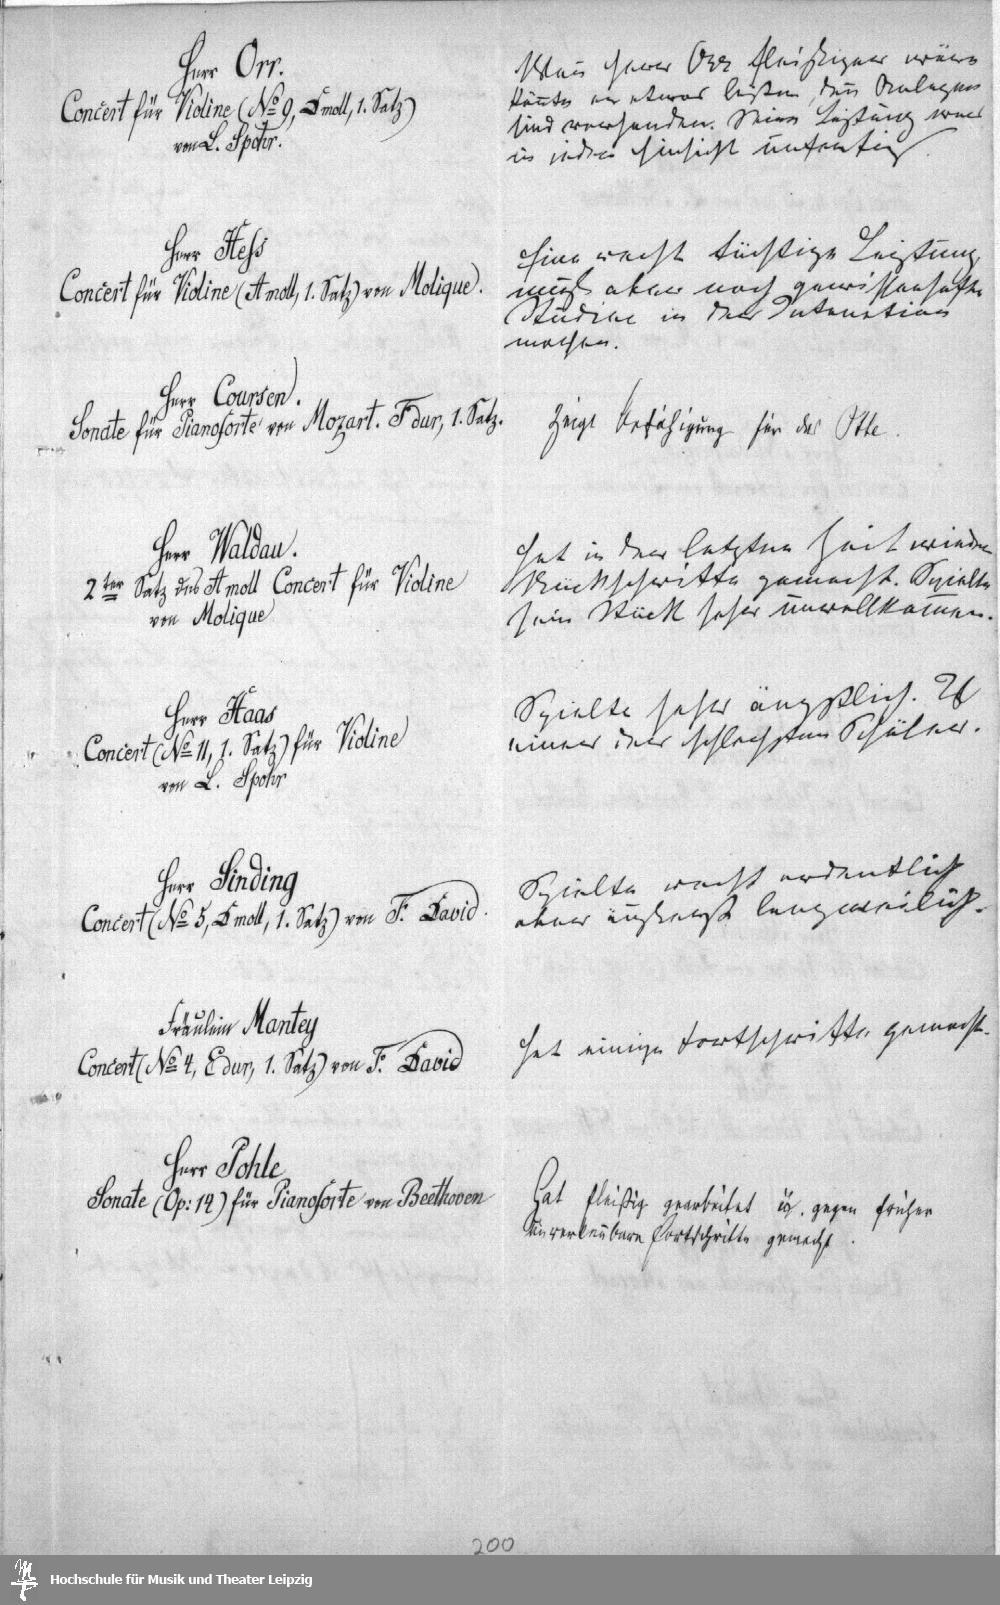 Herr Orr.
Concert für Violine (No 9, Dmoll, 1. Satz)
von L. Spohr.
Wenn Herr Orr fleißiger wäre
könnte er etwas leisten, denn Anlagen
sind vorhanden. Seine Leistung war
in jeder Hinsicht unfertig.
Herr Hess
Concert für Violine (Amoll, 1. Satz) von Molique.
Eine recht tüchtige Leistung,
muß aber noch gewissenhafte
Studien in der Intonation
machen.
Herr Coursen.
Sonate für Pianoforte von Mozart. Fdur, 1. Satz.
Zeigt Befähigung für das
Herr Waldau.
2ter Satz des Amoll Concert für Violine
von Molique
Hat in der letzten Zeit wieder
Rückschritte gemacht. Spielte
sein Stück sehr unvollkommen.
Herr Haas
Concert (No 11, 1. Satz) für Violine
von L. Spohr
Spielte sehr ängstlich. Ist
einer der schlechten Schüler.
Herr Sinding
Concert (No 5, Dmoll, 1. Satz) von F. David.
Spielte recht ordentlich
aber äußerst langweilig.
Fräulein Mantey
Concert (No 4, Edur, 1. Satz) von F. David
Hat einige Fortschritte gemacht.
Herr Pohle
Sonate (Op: 14) für Pianoforte von Beethoven
Hat fleißig gearbeitet u. gegen früher
unverkennbare Fortschritte gemacht.
200
Hochschule für Musik und Theater Leipzig